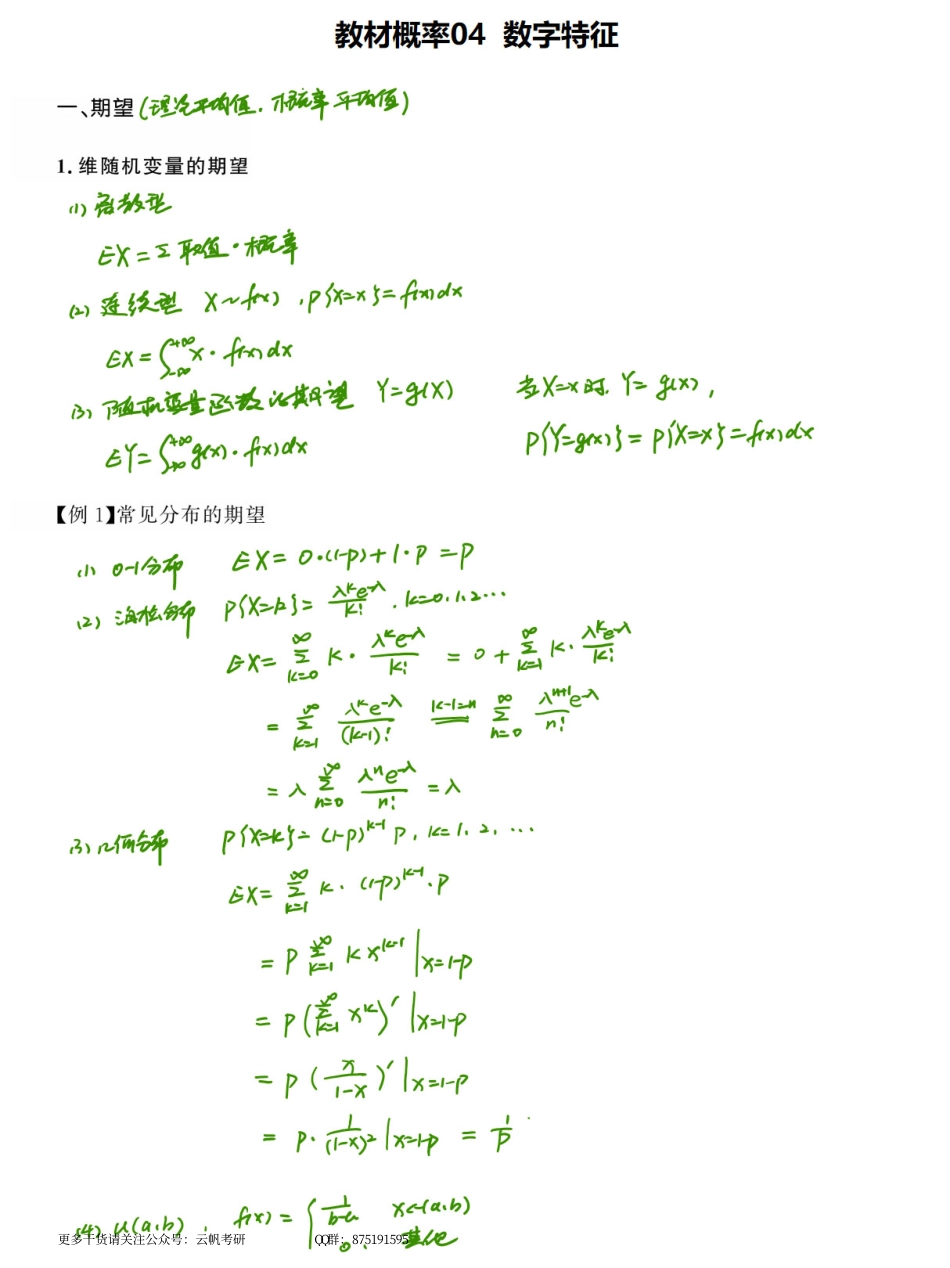 教材概率04 数字特征
一、期望(理论平均值.概率平均值)
1. 维随机变量的期望
(1) 离散型
EX = Σ 取值·概率
(2) 连续型 X~f(x) , P{X=x} = f(x)dx
EX = ∫_{-∞}^{+∞} x·f(x)dx
(3) 随机变量函数的期望 Y=g(X) 当X=x时. Y=g(x) ,
EY = ∫_{-∞}^{+∞} g(x)·f(x)dx P{Y=g(x)} = P{X=x} = f(x)dx
【例 1】常见分布的期望
(1) 0-1分布 EX = 0·(1-p)+1·p = p
(2) 泊松分布 P{X=k} = \frac{λ^k e^{-λ}}{k!} . k=0.1.2…
EX = \sum_{k=0}^{∞} k·\frac{λ^k e^{-λ}}{k!} = 0 + \sum_{k=1}^{∞} k·\frac{λ^k e^{-λ}}{k!}
= \sum_{k=1}^{∞} \frac{λ^k e^{-λ}}{(k-1)!} \xlongequal{k-1=n} \sum_{n=0}^{∞} \frac{λ^{n+1} e^{-λ}}{n!}
= λ \sum_{n=0}^{∞} \frac{λ^n e^{-λ}}{n!} = λ
(3) 几何分布 P{X=k} = (1-p)^{k-1} p , k=1. 2, …
EX = \sum_{k=1}^{∞} k·(1-p)^{k-1}·p
= p \sum_{k=1}^{∞} k x^{k-1} |_{x=1-p}
= p (\sum_{k=1}^{∞} x^k)' |_{x=1-p}
= p (\frac{x}{1-x})' |_{x=1-p}
= p·\frac{1}{(1-x)^2} |_{x=1-p} = \frac{1}{p}
(4) U(a,b) , f(x) = { \frac{1}{b-a} x∈(a,b)
0 , 其他
更多干货请关注公众号：云帆考研 QQ群：875191595